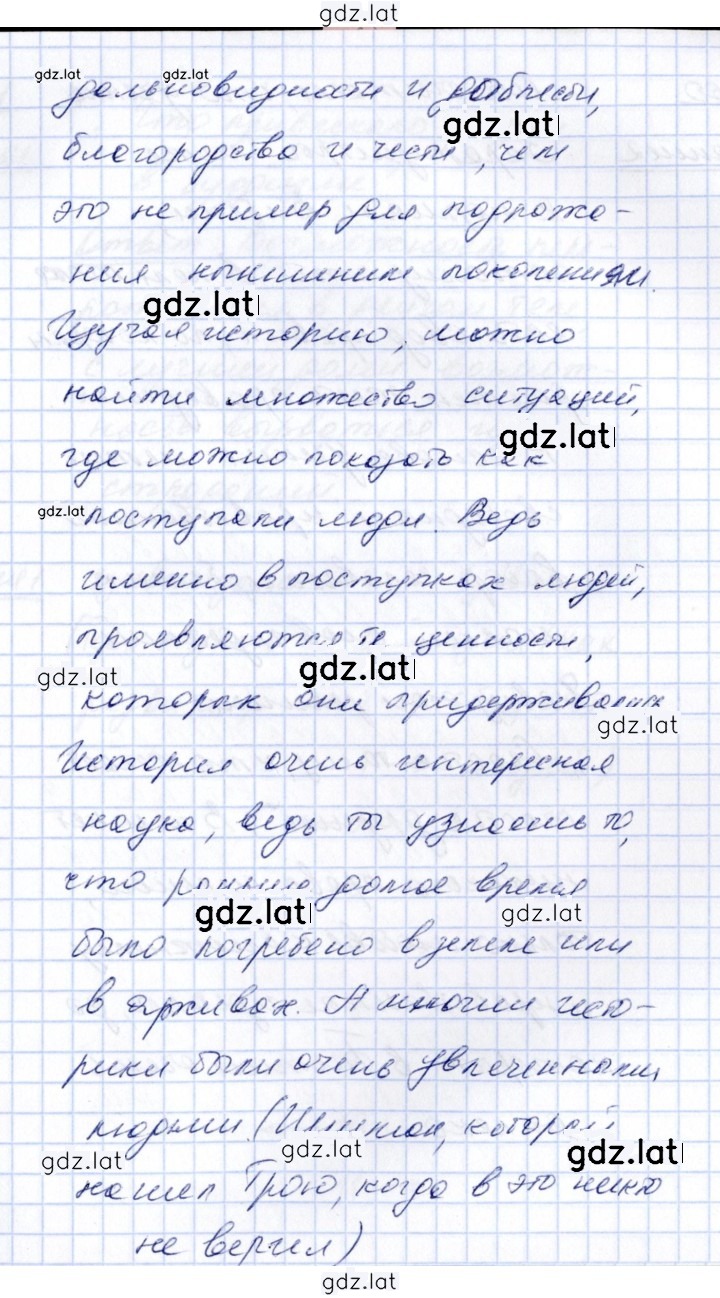 gdz.lat
gdz.lat gdz.lat
дальновидности и доблести,
gdz.lat
благородства и чести, чем
это не пример для подрожа-
ния нынешним поколениям.
gdz.lat
Изучая историю, можно
найти множество ситуаций,
gdz.lat
где можно показать как
gdz.lat
поступали люди. Ведь
именно в поступках людей,
проявляются те ценности,
gdz.lat gdz.lat
которых они придерживались
gdz.lat
История очень интересная
наука, ведь ты узнаешь то,
что раньше долгое время
gdz.lat gdz.lat
было погребено в земле или
в архивах. А многие исто-
рики были очень увлеченными
людьми (который
gdz.lat gdz.lat gdz.lat
нашел Трою, когда в это никто
не верил)
gdz.lat